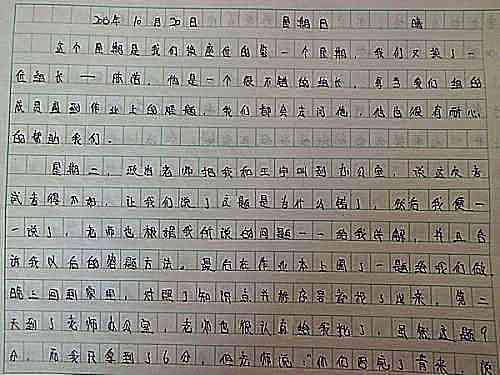 20 年10月20日 星期日 晴
这个星期是我们换座位的第一个星期，我们又换了一
位组长——陈 ，他是一个很不错的组长，每当我们组的
成员遇到作业上的难题，我们都会去问他，他也很有耐心
的帮助我们。
星期二，政治老师把我和王宇叫到办公室，说这次考
试考得不好，让我们说了这题是为什么错了，然后我便一
一说了，老师也根据我所说的问题一一给我讲解，并且告
诉我以后的答题方法。最后在作业本上圈了一题给我们做
晚上回到家里，对照了知识点并 序号 了出来。第二
天到了老师办公室，老师也很认真给我批了，虽然这题9
分，而我只拿到了6分，但老师说：“你们 完了背来，